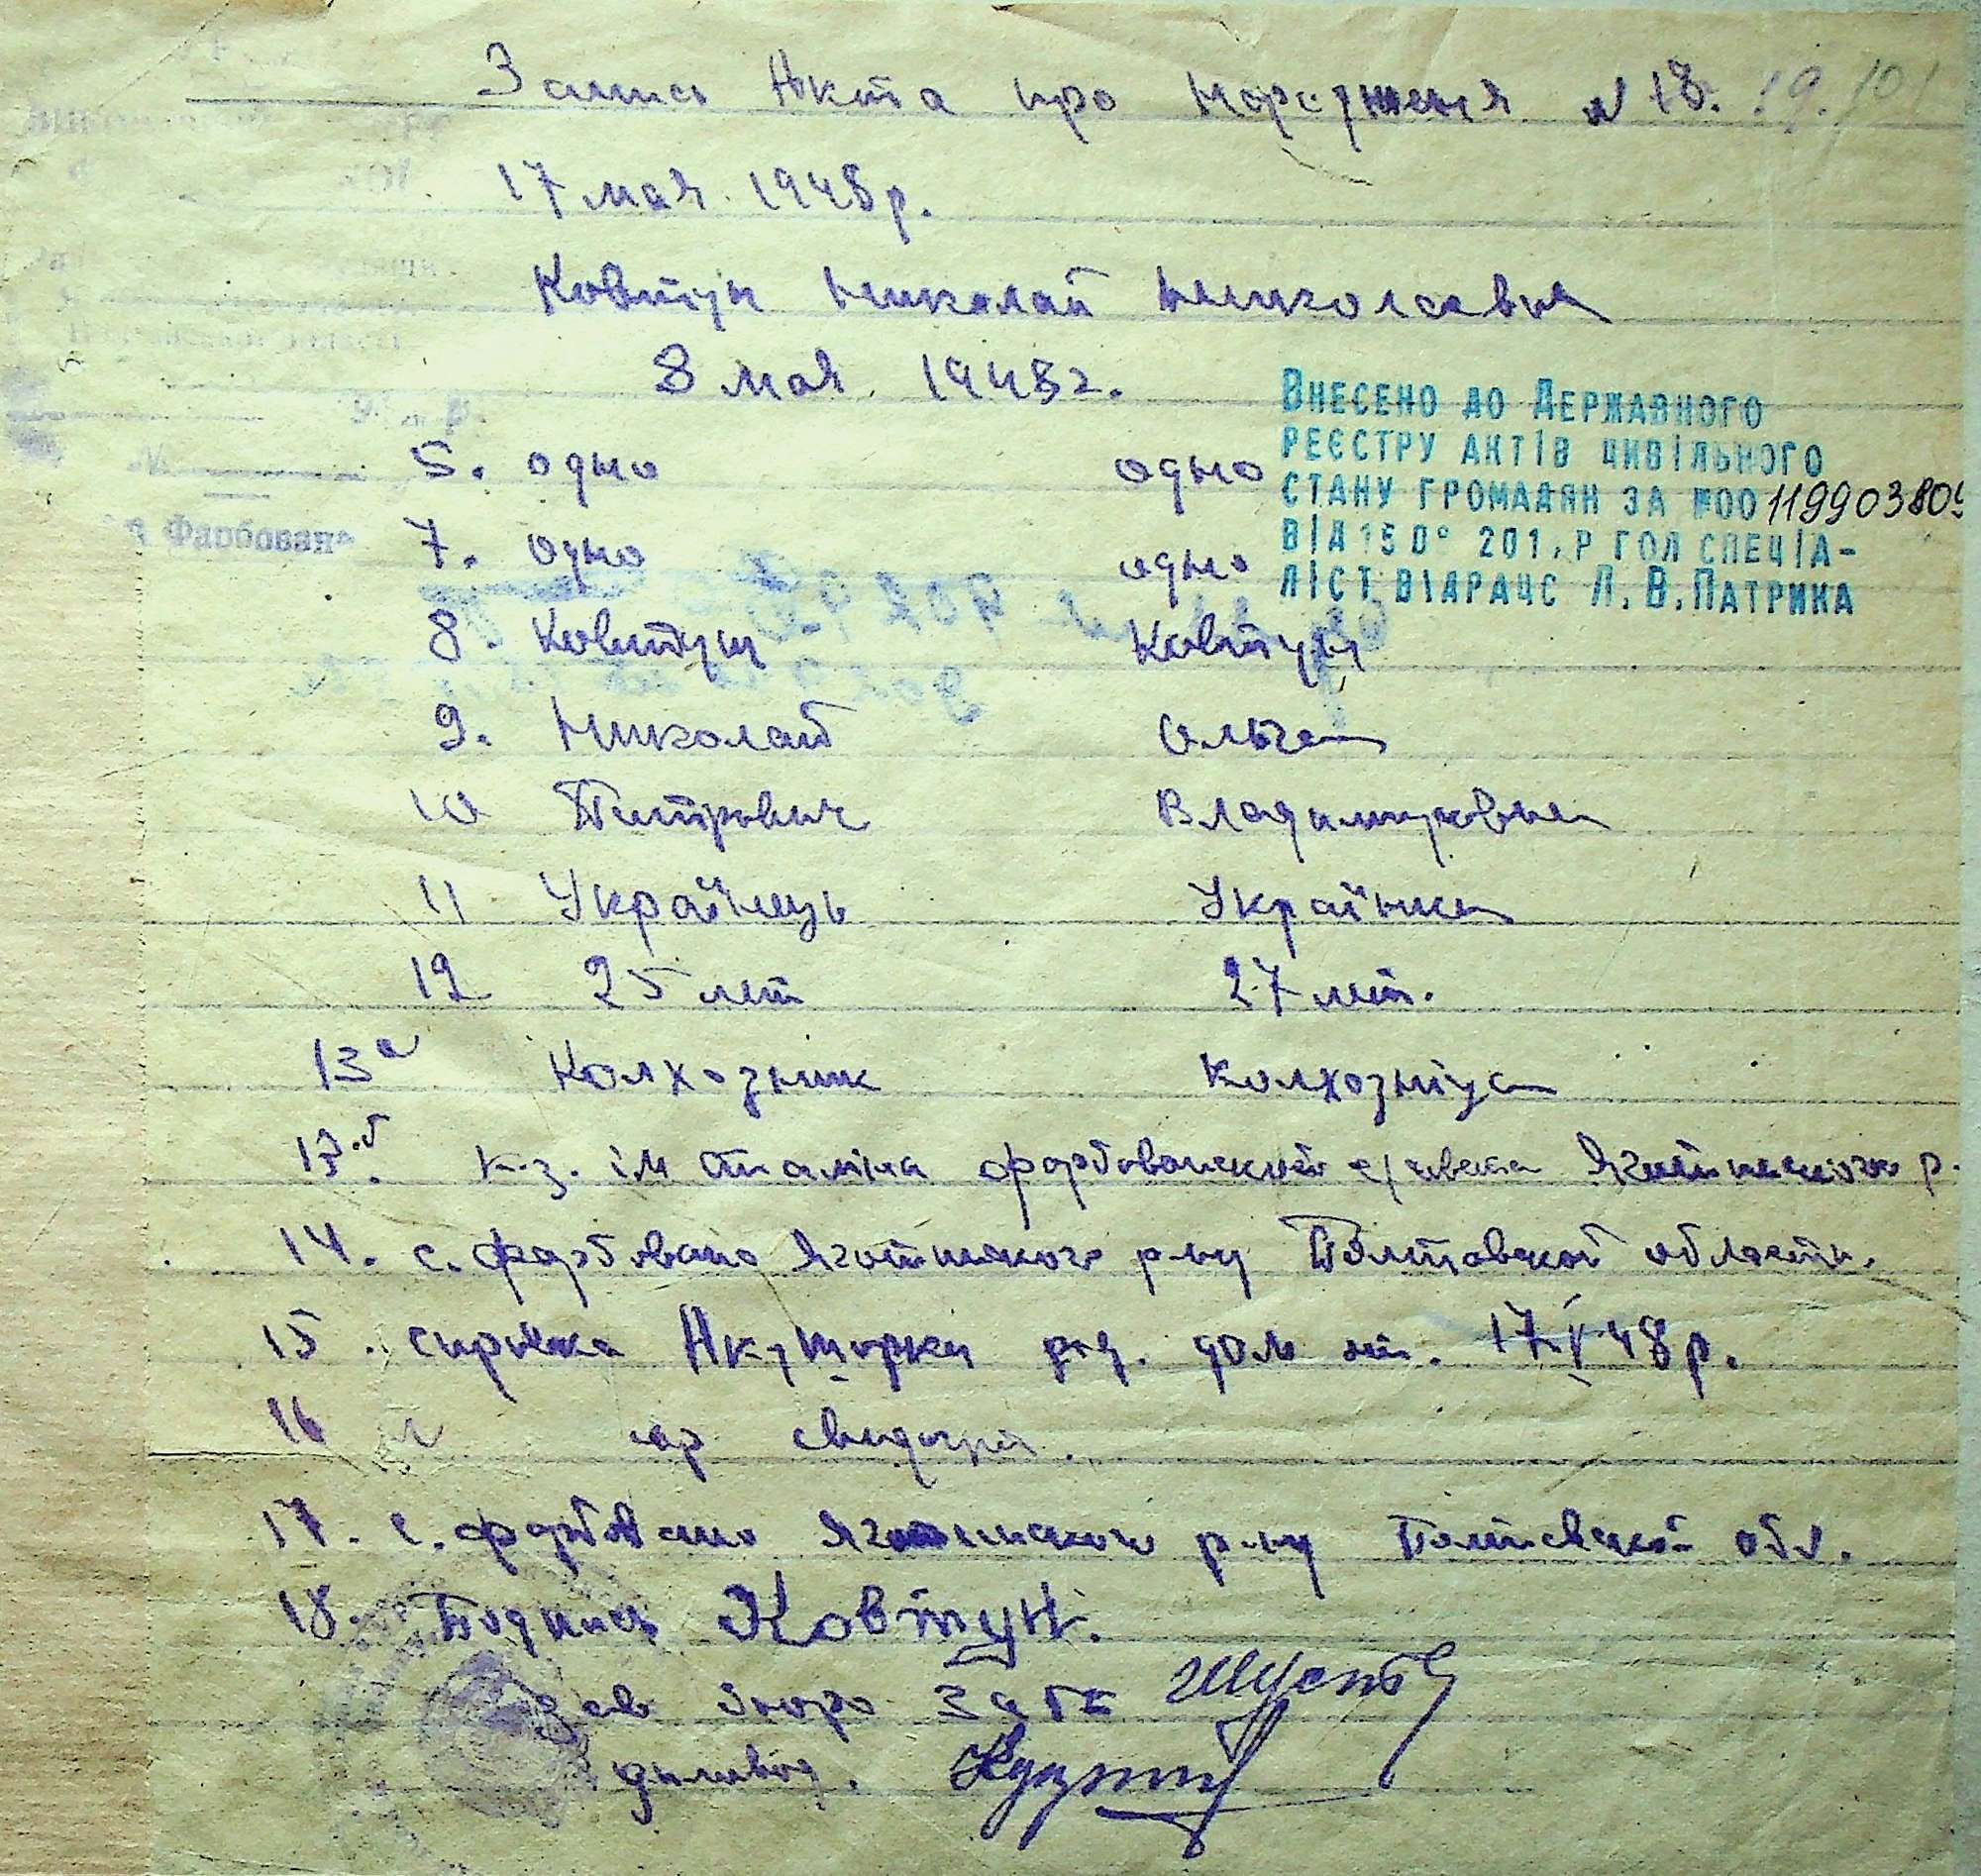 Запись Акта про нарождення N 18. 19.
17 мая 1948 р.
Ковтун Николай Николаевич
8 мая 1948 г.
ВНЕСЕНО ДО ДЕРЖАВНОГО
РЕЄСТРУ АКТІВ ЦИВІЛЬНОГО
СТАНУ ГРОМАДЯН ЗА №00119903809
ВІД 15 201 Р ГОЛ СПЕЦІА-
ЛІСТ ВІДРАЦС Л.В.ПАТРИКА
5. одно одно
7. одно одно
Фарбован
8. Ковтун Ковтун
9. Николай Ольга
10 Питрович Владимировна
11 Українець Українка
12 25 лет 27 лет.
13а Колхозник Колхозніца
13б к-з. ім Сталіна Фарбованской с/совета Яготинского р.
14. с. Фарбовано Яготинского р-ну Полтавской области.
15. справка Акушорки род. дом от. 17 V 48 р.
16
17. с. Фарбовано Яготинского р-ну Полтавской обл.
18. Подпись Ковтун.
Зав бюро Загс
диловод.